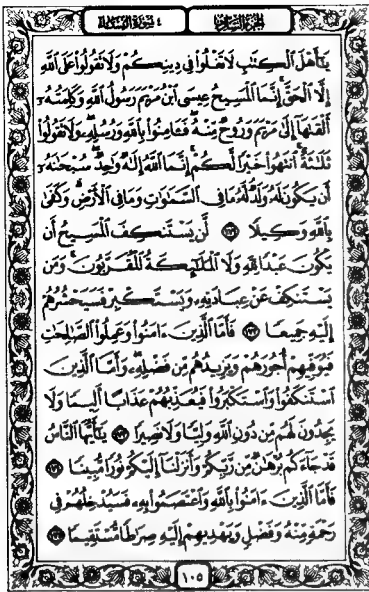 الجزء السادس ٤ سورة النساء
يَٰٓأَهۡلَ ٱلۡكِتَٰبِ لَا تَغۡلُواْ فِي دِينِكُمۡ وَلَا تَقُولُواْ عَلَى ٱللَّهِ
إِلَّا ٱلۡحَقَّۚ إِنَّمَا ٱلۡمَسِيحُ عِيسَى ٱبۡنُ مَرۡيَمَ رَسُولُ ٱللَّهِ وَكَلِمَتُهُۥٓ
أَلۡقَىٰهَآ إِلَىٰ مَرۡيَمَ وَرُوحٞ مِّنۡهُۖ فَـَٔامِنُواْ بِٱللَّهِ وَرُسُلِهِۦۖ وَلَا تَقُولُواْ
ثَلَٰثَةٌۚ ٱنتَهُواْ خَيۡرٗا لَّكُمۡۚ إِنَّمَا ٱللَّهُ إِلَٰهٞ وَٰحِدٞۖ سُبۡحَٰنَهُۥٓ
أَن يَكُونَ لَهُۥ وَلَدٞۘ لَّهُۥ مَا فِي ٱلسَّمَٰوَٰتِ وَمَا فِي ٱلۡأَرۡضِۗ وَكَفَىٰ
بِٱللَّهِ وَكِيلٗا ١٧١ لَّن يَسۡتَنكِفَ ٱلۡمَسِيحُ أَن
يَكُونَ عَبۡدٗا لِّلَّهِ وَلَا ٱلۡمَلَٰٓئِكَةُ ٱلۡمُقَرَّبُونَۚ وَمَن
يَسۡتَنكِفۡ عَنۡ عِبَادَتِهِۦ وَيَسۡتَكۡبِرۡ فَسَيَحۡشُرُهُمۡ
إِلَيۡهِ جَمِيعٗا ١٧٢ فَأَمَّا ٱلَّذِينَ ءَامَنُواْ وَعَمِلُواْ ٱلصَّٰلِحَٰتِ
فَيُوَفِّيهِمۡ أُجُورَهُمۡ وَيَزِيدُهُم مِّن فَضۡلِهِۦۖ وَأَمَّا ٱلَّذِينَ
ٱسۡتَنكَفُواْ وَٱسۡتَكۡبَرُواْ فَيُعَذِّبُهُمۡ عَذَابًا أَلِيمٗا وَلَا
يَجِدُونَ لَهُم مِّن دُونِ ٱللَّهِ وَلِيّٗا وَلَا نَصِيرٗا ١٧٣ يَٰٓأَيُّهَا ٱلنَّاسُ
قَدۡ جَآءَكُم بُرۡهَٰنٞ مِّن رَّبِّكُمۡ وَأَنزَلۡنَآ إِلَيۡكُمۡ نُورٗا مُّبِينٗا ١٧٤
فَأَمَّا ٱلَّذِينَ ءَامَنُواْ بِٱللَّهِ وَٱعۡتَصَمُواْ بِهِۦ فَسَيُدۡخِلُهُمۡ فِي
رَحۡمَةٖ مِّنۡهُ وَفَضۡلٖ وَيَهۡدِيهِمۡ إِلَيۡهِ صِرَٰطٗا مُّسۡتَقِيمٗا ١٧٥
١٠٥